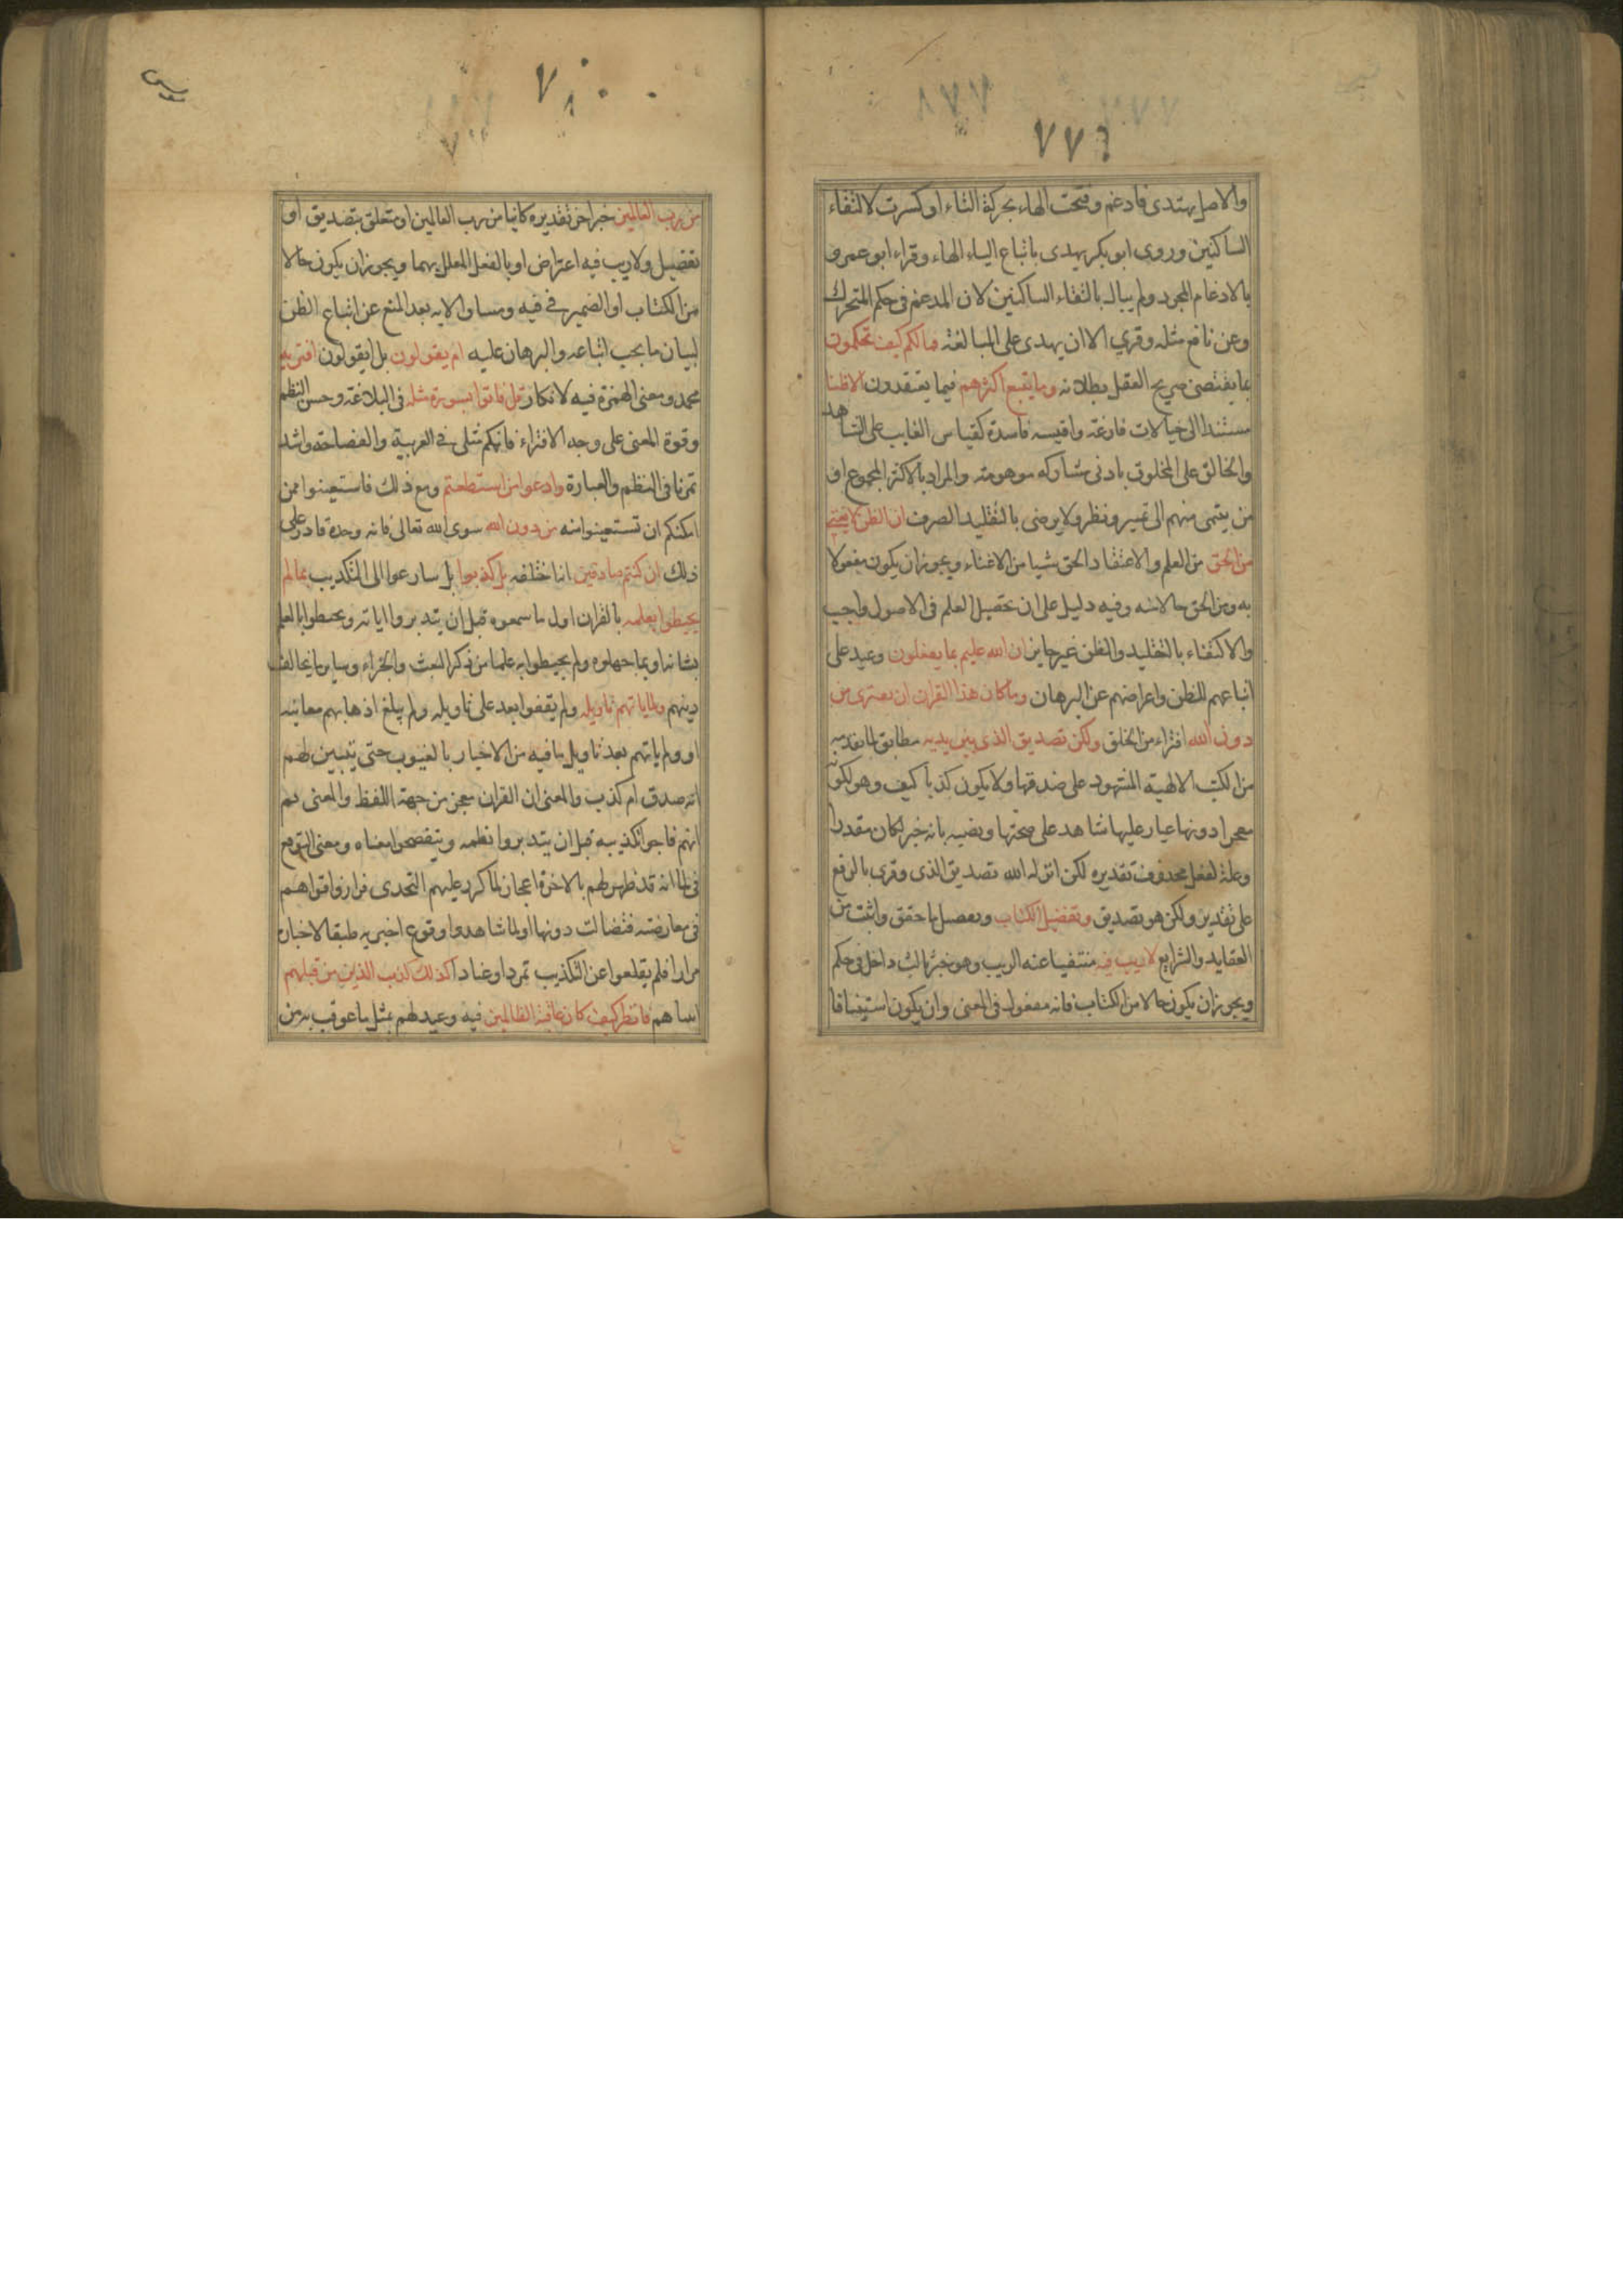 ٧٧٦
والاصل يهتدى فادغم وفتحت الهاء بحركة التاء او كسرت لالتقاء
الساكنين وروى ابو بكر يهدى باتباع الياء الهاء وقراء ابو عمرو
بالادغام المجرد ولم يبال بالتقاء الساكنين لان المدغم فى حكم المتحرك
وعن نافع مثله وقري الا ان يهدى على المبالغة فمالكم كيف تحكمون
بما يقتضى صريح العقل بطلانه وما يتبع اكثرهم فيما يعتقدون الا ظنا
مستندا الى خيالات فارغة واقيسه فاسدة كقياس الغايب على الشاهد
والخالق على المخلوق بادنى مشاركه موهومة والمراد بالاكثر المجموع او
من ينتمى منهم الى تميير ونظر ولا يرضى بالتقليد الصرف ان الظن لا يغنى
من الحق من العلم والاعتقاد الحق شيا من الاغناء ويجوز ان يكون مفعولا
به ومن الحق حالا منه وفيه دليل على ان تحصيل العلم فى الاصول واجب
والاكتفاء بالتقليد والظن غير جايز ان الله عليم بما يفعلون وعيد على
اتباعهم للظن واعراضهم عن البرهان وما كان هذا القران ان يفترى من
دون الله افتراء من الخلق ولكن تصديق الذى بين يديه مطابق لما تقدمه
من الكتب الالهية المشهود على صدقها ولا يكون كذبا كيف وهو لكونه
معجزا دونها عيار عليها شاهد على صحتها ونصبه بانه خبر لكان مقدرا
وعلة لفعل محذوف تقديره لكن انزله الله تصديق الذى وقرى بالرفع
على تقدير ولكن هو تصديق وتفضيل الكتاب وتفصيل ما حقق واثبت من
العقايد والشرايع لا ريب فيه منتفيا عنه الريب وهو خبر ثالث داخل فى حكم
ويجوز ان يكون حالا من الكتاب فانه مفعول فى المعنى وان يكون استينافا
من رب العالمين خبر اخر تقديره كاينا من رب العالمين او متعلق بتصديق او
تفضيل ولا ريب فيه اعتراض او بالفعل المعلل بهما ويجوز ان يكون حالا
من الكتاب او الضمير فى فيه ومساق الايه بعد المنع عن اتباع الظن
لبيان ما يجب اتباعه والبرهان عليه ام يقولون بل ايقولون افتريه
محمد ومعنى الهمزة فيه لانكار قل فاتوا بسورة مثله فى البلاغة وحسن النظم
وقوة المعنى على وجه الافتراء فانكم مثلى فى العربية والفصاحة واشد
تمرنا فى النظم والعبارة وادعوا من استطعتم ومع ذلك فاستعينوا ممن
امكنكم ان تستعينوا منه من دون الله سوى الله تعالى فانه وحده قادر على
ذلك ان كنتم صادقين انا ختلقه بل كذبوا بل سارعوا الى التكذيب بما لم
يحيطوا بعلمه بالقران اول ما سمعوه قبل ان يتدبروا اياته ويحيطوا بالعلم
بشانه او بما جهلوه ولم يحيطوا به علما من ذكر البعث والجزاء وساير ما يخالف
دينهم ولما ياتهم تاويله ولم يقفوا بعد على تاويله ولم يبلغ اذهابهم معانيه
او ولم ياتهم بعد تاويل ما فيه من الاخبار بالغيوب حتى يتبين لهم
انه صدق ام كذب والمعنى ان القران معجز من جهة اللفظ والمعنى ثم
انهم فاجوا تكذيبه قبل ان يتدبروا نظمه ويتفصحوا معناه ومعنى التوقع
فى لما انه قد ظهر لهم بالاخرة اعجازه لما كرر عليهم التحدى فرازوا قواهم
فى معارضته فتضالت دونها او لما شاهدوا وقوع اخبر به طبقا لاخباره
مرارا فلم يقلعوا عن التكذيب تمردا وعنادا كذلك كذب الذين من قبلهم
انبياهم فانظر كيف كان عاقبة الظالمين فيه وعيد لهم بمثل ما عوقب به من